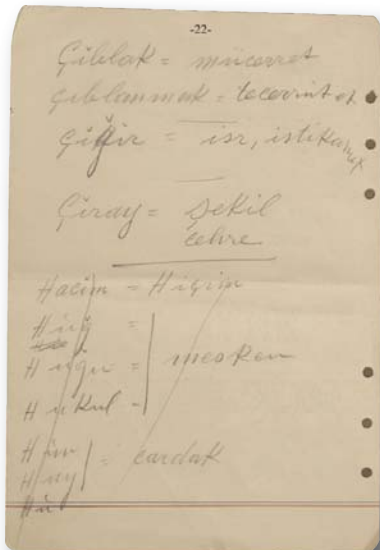 -22-
Çıblak = mücerret
çıblanmak = tecerrüt et
çığır = isr, istikamet
Çıray = şekil
çehre
Hacim = Hiçim
Hüğ =
Huğu = mesken
Hukul =
Hüy = çardak
Hü